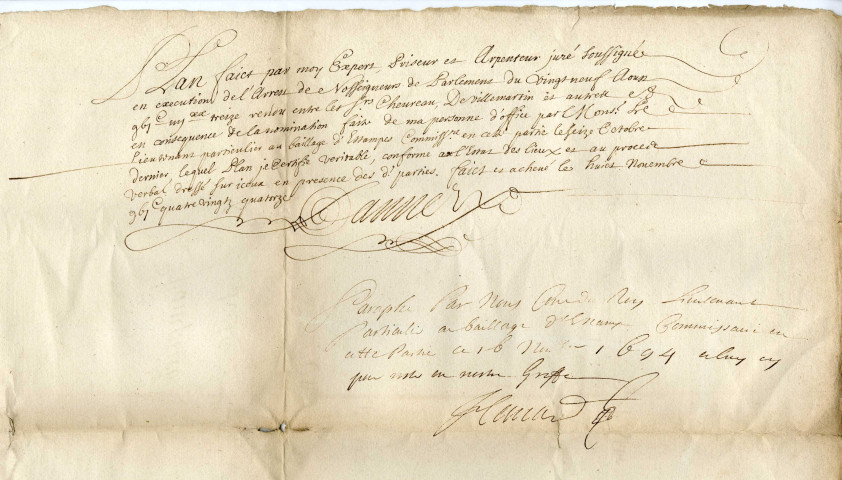 Plan faict par moy Expert, Priseur et Arpenteur juré soussigné
en execution de l'Arrest de Nosseigneurs de Parlement du vingt neuf Aoust
treize rendu entre les Srs Chevreau, De Villemartin et autres
en consequence de la nomination faite de ma personne d'office par Monsr Le
Lieutenant particulier au baillage d'Estampes Commissre en cette partie le seize Octobre
dernier, lequel Plan je certifie veritable, conforme a l'Estat des lieux et au procez
verbal dressé sur iceux en presence des dt parties. faict et achevé le huict Novembre
quatre vingtz quatorze
Paraphé Par Nous Lieutenant
Particulier au baillage d'Estampes Commissaire en
cette Partie ce 16 1694
en nostre Greffe